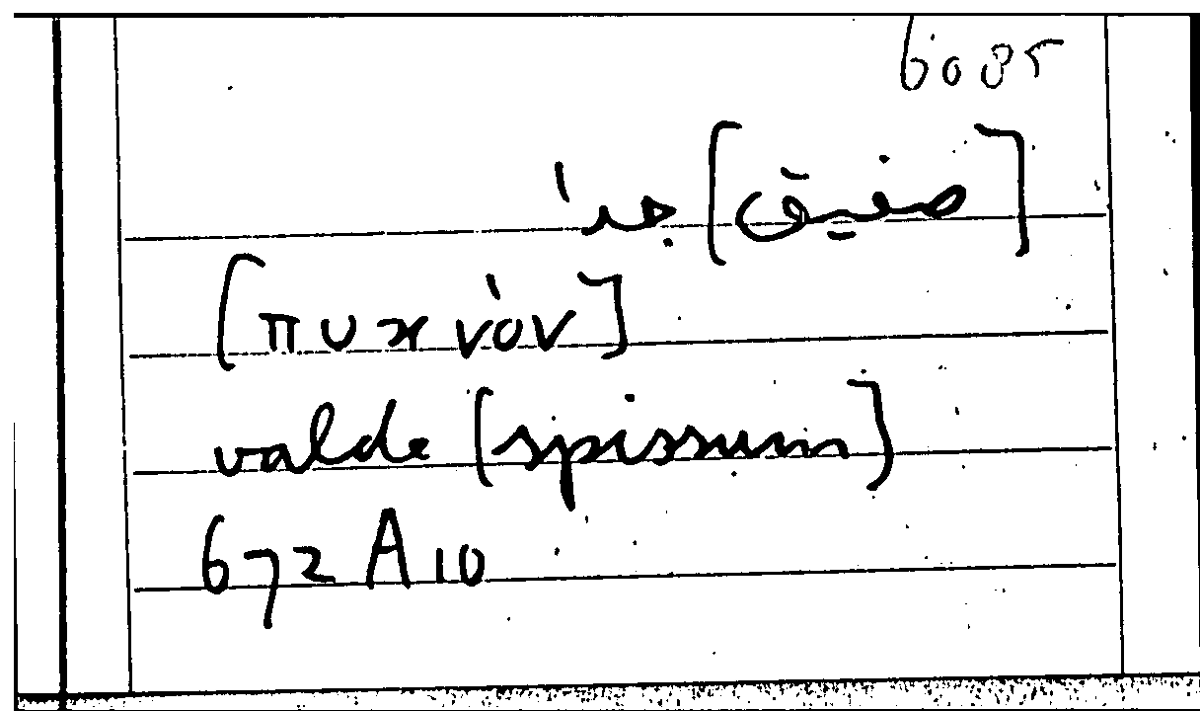 6085
[صفيق] جدا
[πυκνόν]
valde [spissum]
672 A 10